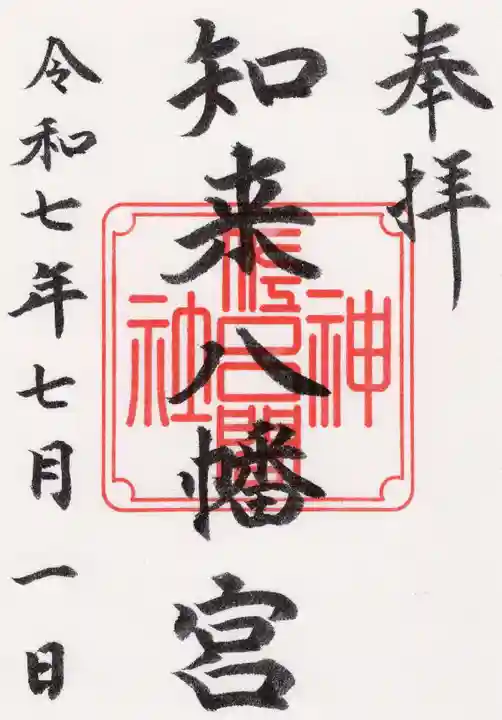 奉拝
知来八幡宮
令和七年七月一日
佐呂間神社